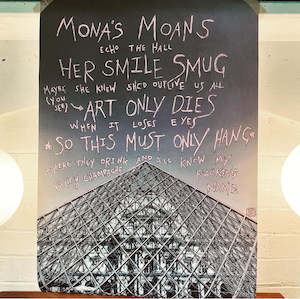 MONA'S MOANS
ECHO THE HALL
HER SMILE SMUG
MAYBE SHE KNEW SHE'D OUTLIVE US ALL
(YOU SEE) → ART ONLY DIES
WHEN IT LOSES EYES
*SO THIS MUST ONLY HANG*
WHERE THEY DRINK AND ALL KNEW MY
CHAMPAGNE
NAME